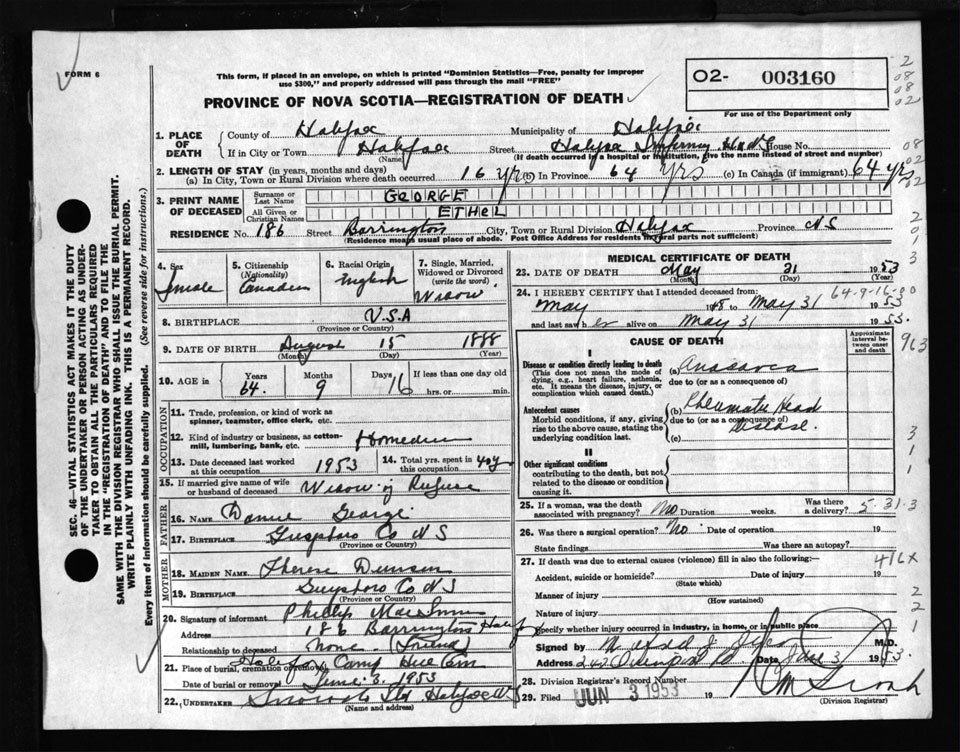 FORM 6
This form, if placed in an envelope, on which is printed "Dominion Statistics—Free, penalty for improper
use $300," and properly addressed will pass through the mail "FREE"
PROVINCE OF NOVA SCOTIA—REGISTRATION OF DEATH
O2- 003160
For use of the Department only
SEC. 46—VITAL STATISTICS ACT MAKES IT THE DUTY
OF THE UNDERTAKER OR PERSON ACTING AS UNDER-
TAKER TO OBTAIN ALL THE PARTICULARS REQUIRED
IN THE "REGISTRATION OF DEATH" AND TO FILE THE
SAME WITH THE DIVISION REGISTRAR WHO SHALL ISSUE THE BURIAL PERMIT.
WRITE PLAINLY WITH UNFADING INK. THIS IS A PERMANENT RECORD.
Every item of information should be carefully supplied. (See reverse side for instructions.)
1. PLACE OF DEATH
County of Halifax Municipality of Halifax
If in City or Town Halifax Street Halifax Infirmary House No.
(Name) (If death occurred in a hospital or institution, give the name instead of street and number)
2. LENGTH OF STAY (in years, months and days)
(a) In City, Town or Rural Division where death occurred 16 yrs (b) In Province 64 yrs (c) In Canada (if immigrant) 64 yrs
3. PRINT NAME OF DECEASED
Surname or Last Name GEORGE
All Given or Christian Names ETHEL
RESIDENCE No. 186 Street Barrington City, Town or Rural Division Halifax Province NS
(Residence means usual place of abode. Post Office Address for residents in rural parts not sufficient)
4. Sex
5. Citizenship (Nationality) Canadian
6. Racial Origin English
7. Single, Married, Widowed or Divorced (write the word) Widow
8. BIRTHPLACE U.S.A
(Province or Country)
9. DATE OF BIRTH August 15 1888
(Month) (Day) (Year)
10. AGE in Years 64 Months 9 Days 16 If less than one day old hrs. or min.
OCCUPATION
11. Trade, profession, or kind of work as
spinner, teamster, office clerk, etc.
12. Kind of industry or business, as cotton-
mill, lumbering, bank, etc.
13. Date deceased last worked at this occupation 1953
14. Total yrs. spent in this occupation 40y
15. If married give name of wife
or husband of deceased Widow of
FATHER
16. NAME George
17. BIRTHPLACE Guysboro Co NS
(Province or Country)
MOTHER
18. MAIDEN NAME
19. BIRTHPLACE Guysboro Co NS
(Province or Country)
20. Signature of informant Phillip
Address 186 Barrington Halifax
Relationship to deceased None (Friend)
21. Place of burial, cremation or removal Halifax Camp Hill Cem
Date of burial or removal June 3. 1953
22. UNDERTAKER Snows Ltd Halifax NS
(Name and address)
MEDICAL CERTIFICATE OF DEATH
23. DATE OF DEATH May 31 1953
(Month) (Day)
24. I HEREBY CERTIFY that I attended deceased from: 64-9-16-00
May 1948 to May 31 1953
and last saw her alive on May 31 1953.
CAUSE OF DEATH
Approximate interval between onset and death
I
Disease or condition directly leading to death
(This does not mean the mode of
dying, e.g., heart failure, asthenia,
etc. It means the disease, injury, or
complication which caused death.)
(a) Anasarca
due to (or as a consequence of)
Antecedent causes
Morbid conditions, if any, giving
rise to the above cause, stating the
underlying condition last.
(b) Rheumatic Heart
due to (or as a consequence of)
Disease.
(c)
II
Other significant conditions
contributing to the death, but not
related to the disease or condition
causing it.
25. If a woman, was the death
associated with pregnancy? No Duration weeks. Was there a delivery? 5-31-3
26. Was there a surgical operation? No. Date of operation 19
State findings Was there an autopsy?
27. If death was due to external causes (violence) fill in also the following: 416X
Accident, suicide or homicide? Date of injury 19
(State which)
Manner of injury
(How sustained)
Nature of injury
Specify whether injury occurred in industry, in home, or in public place
Signed by M.D.
Address Date June 3 1953.
28. Division Registrar's Record Number
29. Filed JUN 3 1953 19
(Division Registrar)